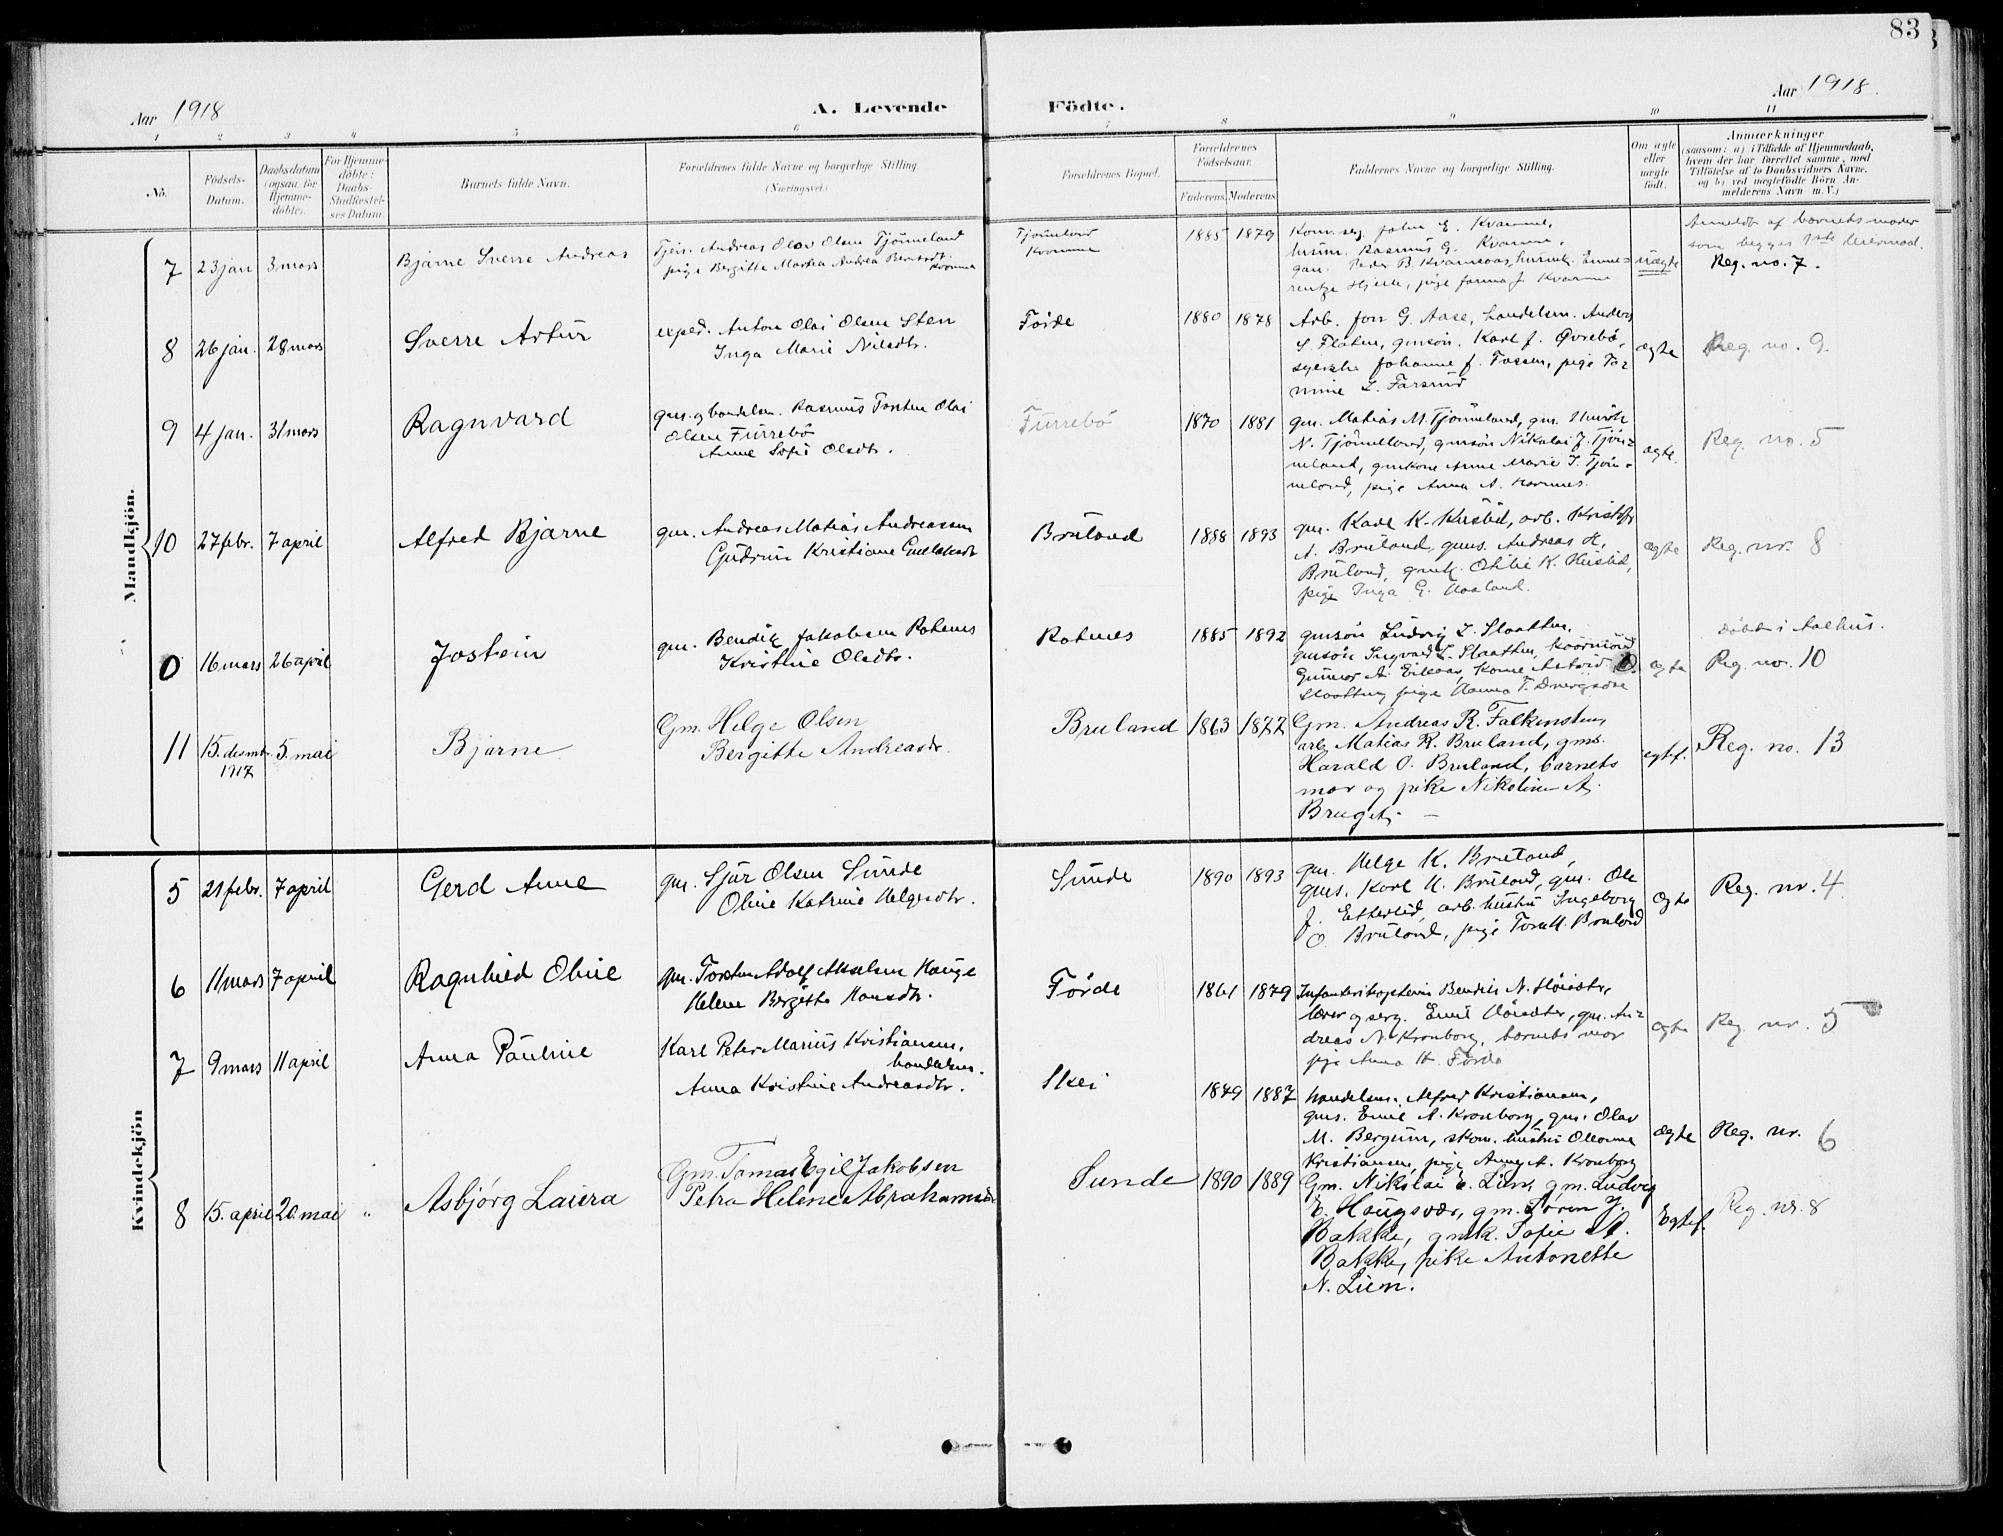 83
Aar 1918
A. Levende Födte.
Aar 1918.
1 2 3 4 5 6 7 8 9 10 11
No.
Födsels-
Datum.
Daabsdatum
(ogsaa for
Hjemme-
döbte).
For Hjemme-
döbte:
Daabs-
Stadfæstel-
ses Datum
Barnets fulde Navn.
Forældrenes fulde Navne og borgerlige Stilling
(Næringsvei.)
Forældrenes Bopæl.
Forældrenes
Födselsaar.
Faderens. Moderens
Faddernes Navne og borgerlige Stilling.
Om ægte
eller
uægte
födt.
Anmærkninger
(saasom: a) i Tilfælde af Hjemmedaab,
hvem der har forrettet samme, med
Tilföielse af to Daabsvidners Navne.
og b) ved uægtefödte Börn An-
melderens Navn m. V.)
Mandkjön.
7 23 jan 3 mars
Bjarne Sverre Andreas
Andreas Olav Olsen Tjönneland
pige Bergitte Martea Andrea Berntsdtr.
Kvamme
Tjönneland
Kvamme
1885 1879
E. Kvamme,
Rasmus G. Kvamme,
Peter B. Kvamsaas,
pige Kvamme
uægte
Anmeldt af barnets moder
som begges 1ste leiermaal.
Reg. no. 7.
8 26 jan. 28 mars
Sverre Artur
exped. Anton Olai Olsen Sten
Inga Marie Nilsdtr.
Förde
1880 1878
Arb. G. Aase, handelsm. Anders
S Flaten, gmsön. Karl J. Øvrebö,
Johanne J. pige
L. Farsund
ægte
Reg. no. 9.
9 4 jan. 31 mars
Ragnvard
gm. og handelsm. Rasmus Torsten Olai
Olsen Furrebö
Anne Sofie Olsdtr.
Furrebö
1870 1881
gm. Matias M. Tjönneland, gm.
N. Tjönneland, gmsön Nikolai J. Tjön-
neland, gmkone Anne Marie J. Tjön-
neland, pige Anna A.
ægte.
Reg. no. 5
10 27 febr. 7 april
Alfred Bjarne
gm. Andreas Matias Andreassen
Gudrun Kristiane
Bruland
1888 1893
gm. Karl K. Huslid, arb. Kristofer
A. Bruland, gms. Andreas H.
Bruland, gmk. Otilie K. Huslid,
pige Inga G.
ægte
Reg. nr. 8
0 16 mars 26 april
Jostein
gm. Bendik Jakobsen Rotnes
Kristine Olsdtr.
Rotnes
1885 1892
gmsön Ludvig L. Slaatten,
gmsön Ingvald L. Slaatten,
Gunnar A. Eikaas, Astrid
Slaatten, pige
ægte
döbt i Aalhus.
Reg. no. 10
11 15. desmb. 5. mai
1917
Bjarne
Gm. Helge Olsen
Bergitte Andreasdtr.
Bruland
1863 1877
Gm. Andreas R. Falkensten,
arb. Matias R. Bruland, gms.
Harald O. Bruland, barnets
mor og pike Nikoline A.
Bruget. —
egtef.
Reg. no. 13
Kvindekjön
5 21 febr. 7 april
Gerd Anne
gm. Sjur Olsen Sunde
Oline Katrine Helgesdtr.
Sunde
1890 1893
gm. Helge K. Bruland,
gms. Karl H. Bruland, gm. Ole
J. arb. hustru Ingeborg
O. Bruland, pige Bruland
ægte
Reg. nr. 4
6 11 mars 7 april
Ragnhild Oline
gm. Torsten Adolf Akselsen Hauge
Helene Bergitte Hansdtr.
Förde
1861 1879
Bendik N.
lærer og serg. Emil gm. An-
dreas N. Kronborg, barnets mor
pige Anna H. Förde
ægte
Reg. nr. 5
7 9 mars 11 april
Anna Pauline
Karl Peter Marius Kristiansen,
handelsm.
Anna Kristine Andreasdtr.
Skei
1879 1887
Handelsm. Alfred Kristiansen,
gms. Emil A. Kronborg, gm. Olav
M. Bergum, skom. hustru
Kristiansen, pige Anny A. Kronborg
ægte
Reg. nr. 6
8 15. april 20. mai "
Asbjørg Laura
Gm. Tomas Egil Jakobsen
Petra Helene Abrahamsdtr.
Sunde
1890 1889
Gm. Nikolai E. Lien, gm. Ludvig
E. Haugsvær, gm. Søren J.
Bakke, gmk. Sofie A.
Bakke, pike Antonette
N. Lien.
Egtef.
Reg. nr. 8